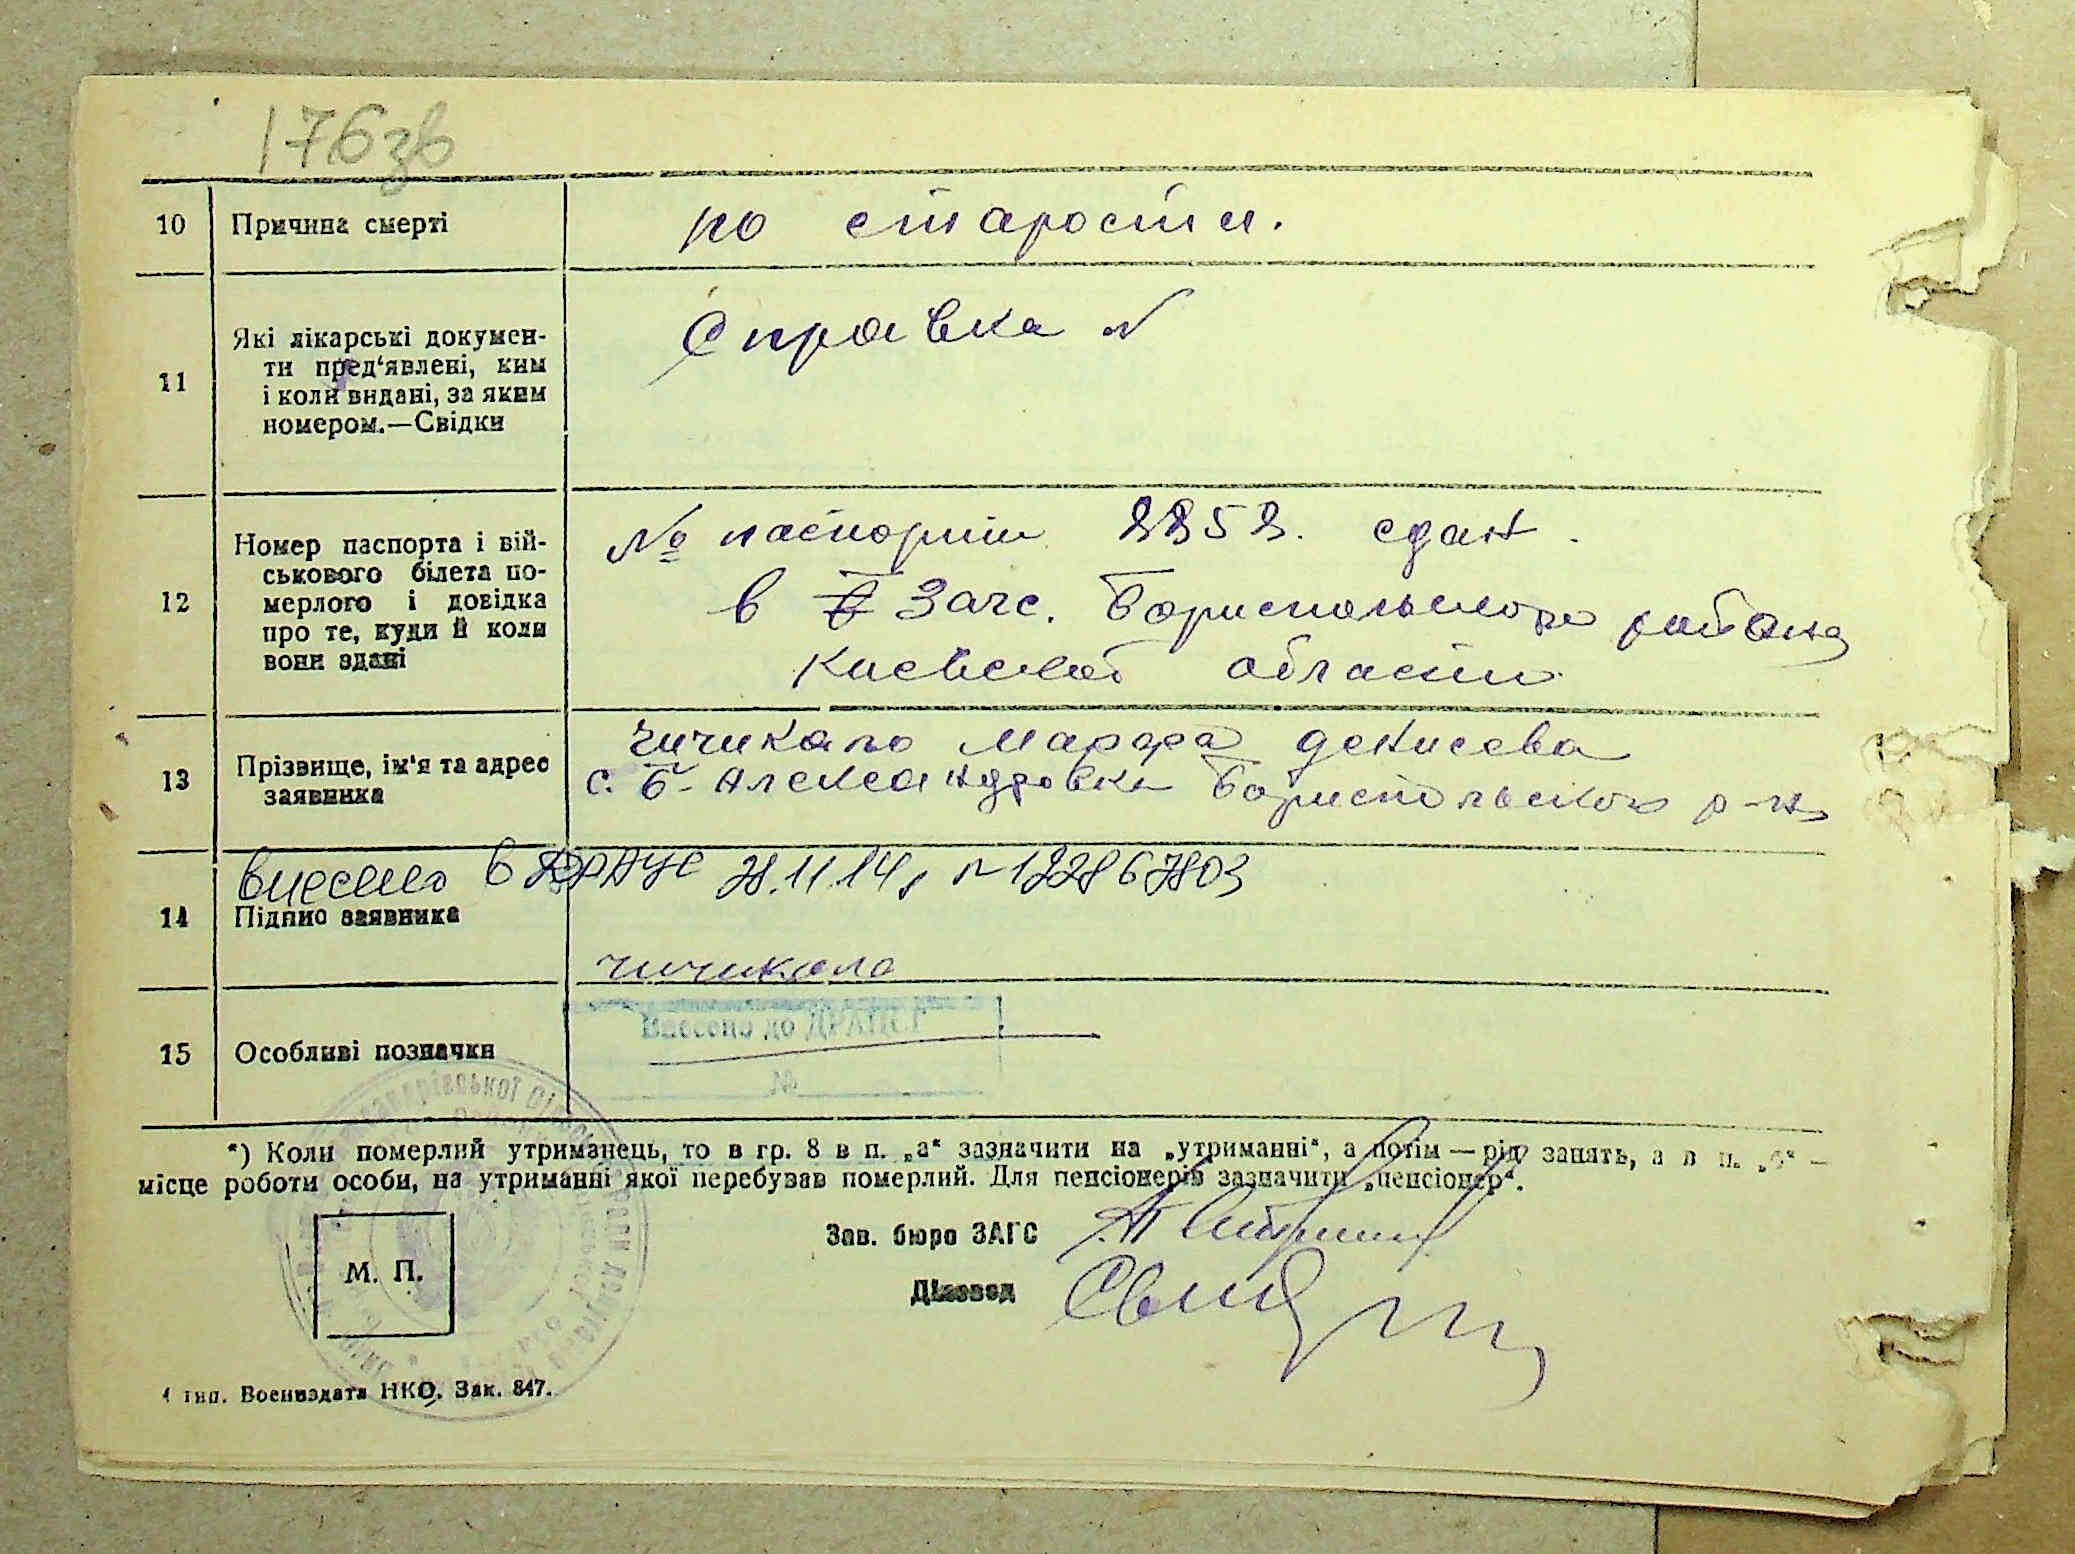 176зв
10 Причина смерті по старости.
11 Які лікарські докумен-
ти пред'явлені, ким
і коли видані, за яким
номером.—Свідки
Справка N
12 Номер паспорта і вій-
ськового білета по-
мерлого і довідка
про те, куди й коли
вони здані
№ паспорта 2252. сдан.
в Загс. Бориспольского района
Киевской области
13 Прізвище, ім'я та адрес
заявника
Чичикало Марфа Денисева
с. Б-Александровка Бориспольского р-на
внесено в ДРАЦС 28.11.14,
14 Підпис заявника
чичикало
Внесено до ДРАЦСГ
15 Особливі позначки
№
*) Коли померлий утриманець, то в гр. 8 в п. „а“ зазначити на „утриманні“, а потім — рід занять, а в п. „б“ —
місце роботи особи, на утриманні якої перебував померлий. Для пенсіонерів зазначити „пенсіонер“.
Зав. бюро ЗАГС
М. П.
Діловод
4 тип. Воениздата НКО, Зак. 847.